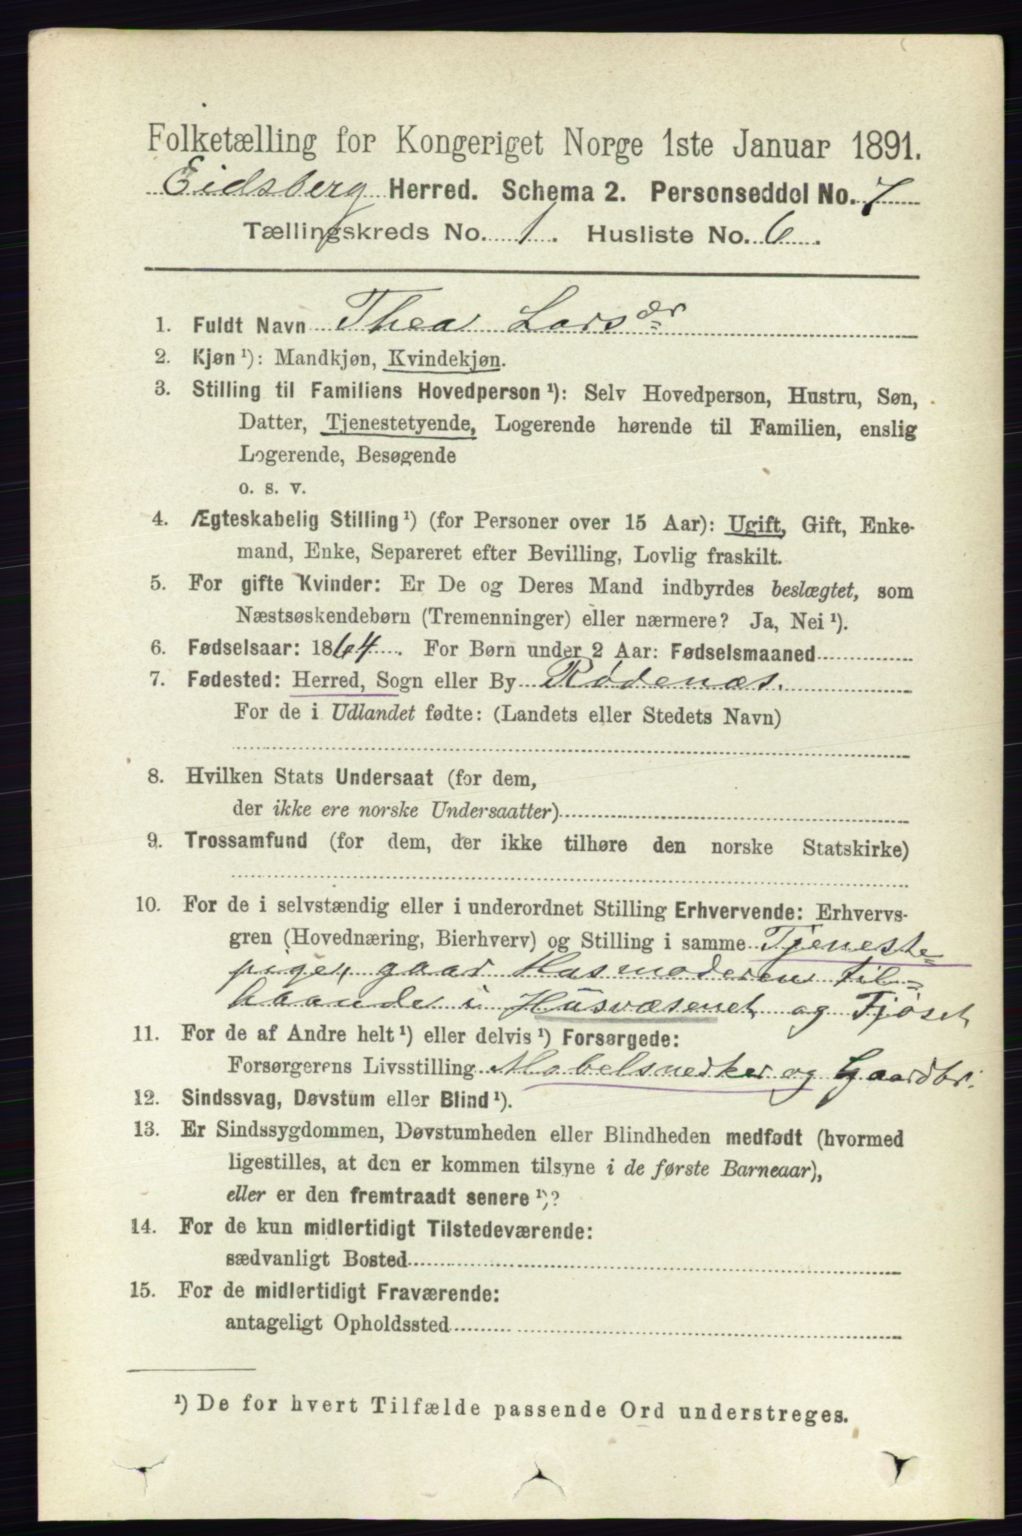 Folketælling for Kongeriget Norge 1ste Januar 1891.
Eidsberg Herred. Schema 2. Personseddel No. 7
Tællingskreds No. 1. Husliste No. 6.
1. Fuldt Navn Thea Larsdr
2. Kjøn ¹): Mandkjøn, Kvindekjøn.
3. Stilling til Familiens Hovedperson ¹): Selv Hovedperson, Hustru, Søn,
Datter, Tjenestetyende, Logerende hørende til Familien, enslig
Logerende, Besøgende
o. s. v.
4. Ægteskabelig Stilling ¹) (for Personer over 15 Aar): Ugift, Gift, Enke-
mand, Enke, Separeret efter Bevilling, Lovlig fraskilt.
5. For gifte Kvinder: Er De og Deres Mand indbyrdes beslægtet, som
Næstsøskendebørn (Tremenninger) eller nærmere? Ja, Nei ¹).
6. Fødselsaar: 1864. For Børn under 2 Aar: Fødselsmaaned
7. Fødested: Herred, Sogn eller By Rødenæs.
For de i Udlandet fødte: (Landets eller Stedets Navn)
8. Hvilken Stats Undersaat (for dem,
der ikke ere norske Undersaatter)
9. Trossamfund (for dem, der ikke tilhøre den norske Statskirke)
10. For de i selvstændig eller i underordnet Stilling Erhvervende: Erhvervs-
gren (Hovednæring, Bierhverv) og Stilling i samme Tjeneste=
pige, gaar Husmoderen til=
haande i Husvæsenet og Fjøset
11. For de af Andre helt ¹) eller delvis ¹) Forsørgede:
Forsørgerens Livsstilling Møbelsnedker og Gaardbr.
12. Sindssvag, Døvstum eller Blind ¹).
13. Er Sindssygdommen, Døvstumheden eller Blindheden medfødt (hvormed
ligestilles, at den er kommen tilsyne i de første Barneaar),
eller er den fremtraadt senere ¹)?
14. For de kun midlertidigt Tilstedeværende:
sædvanligt Bosted
15. For de midlertidigt Fraværende:
antageligt Opholdssted
¹) De for hvert Tilfælde passende Ord understreges.